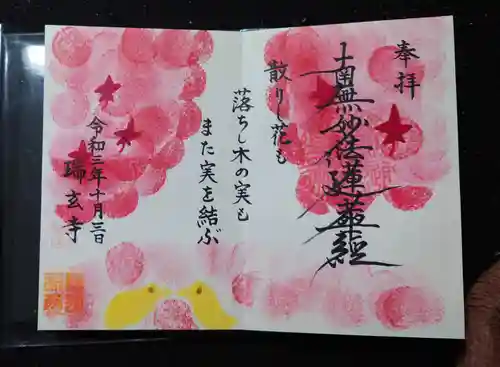 奉拝
南無妙法蓮華経
散りし花も
落ちし木の実も
また実を結ぶ
令和三年十月三日
瑞玄寺